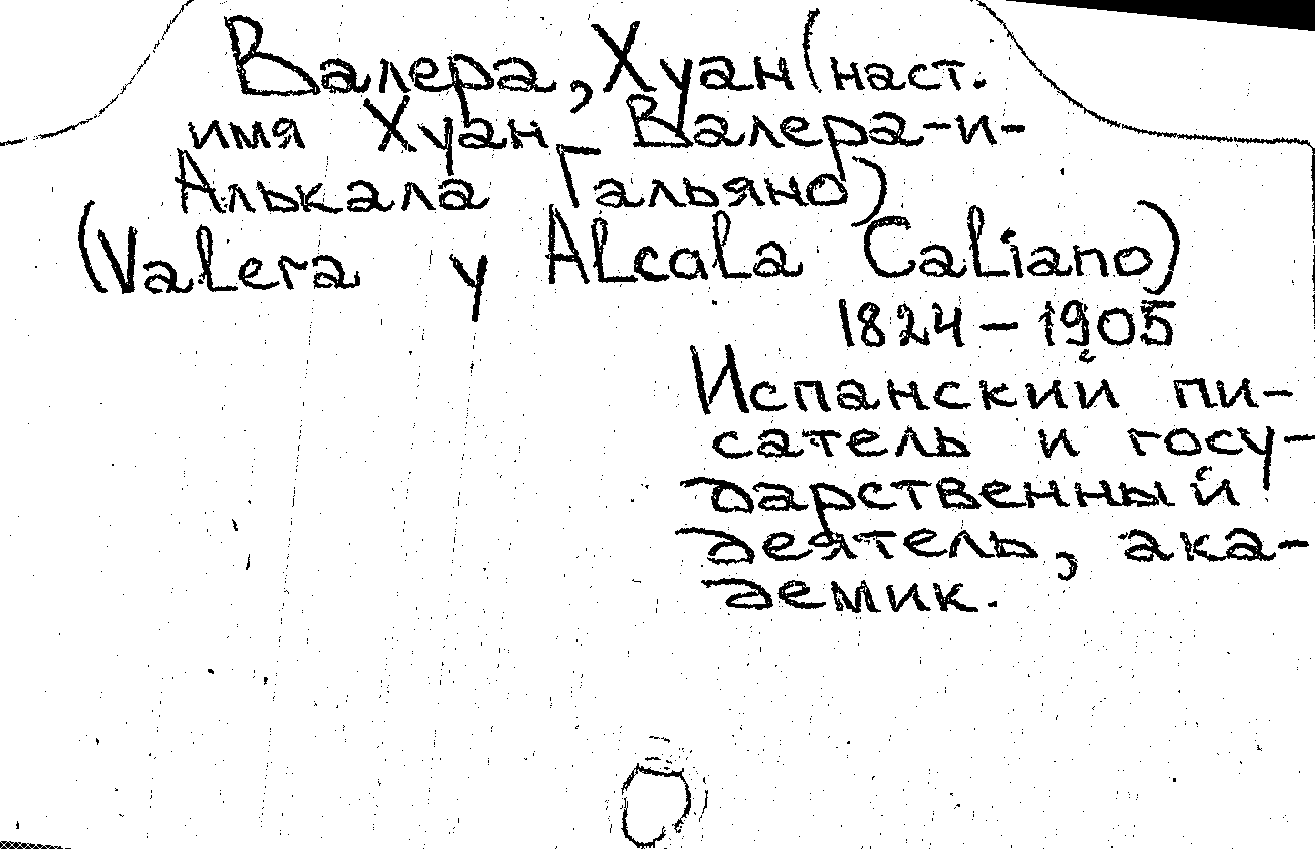 Валера, Хуан (наст.
имя Хуан Валера-и-
Алькала Гальяно)
(Valera y Alcala Caliano)
1824 – 1905
Испанский пи-
сатель и госу-
дарственный
деятель, ака-
демик.